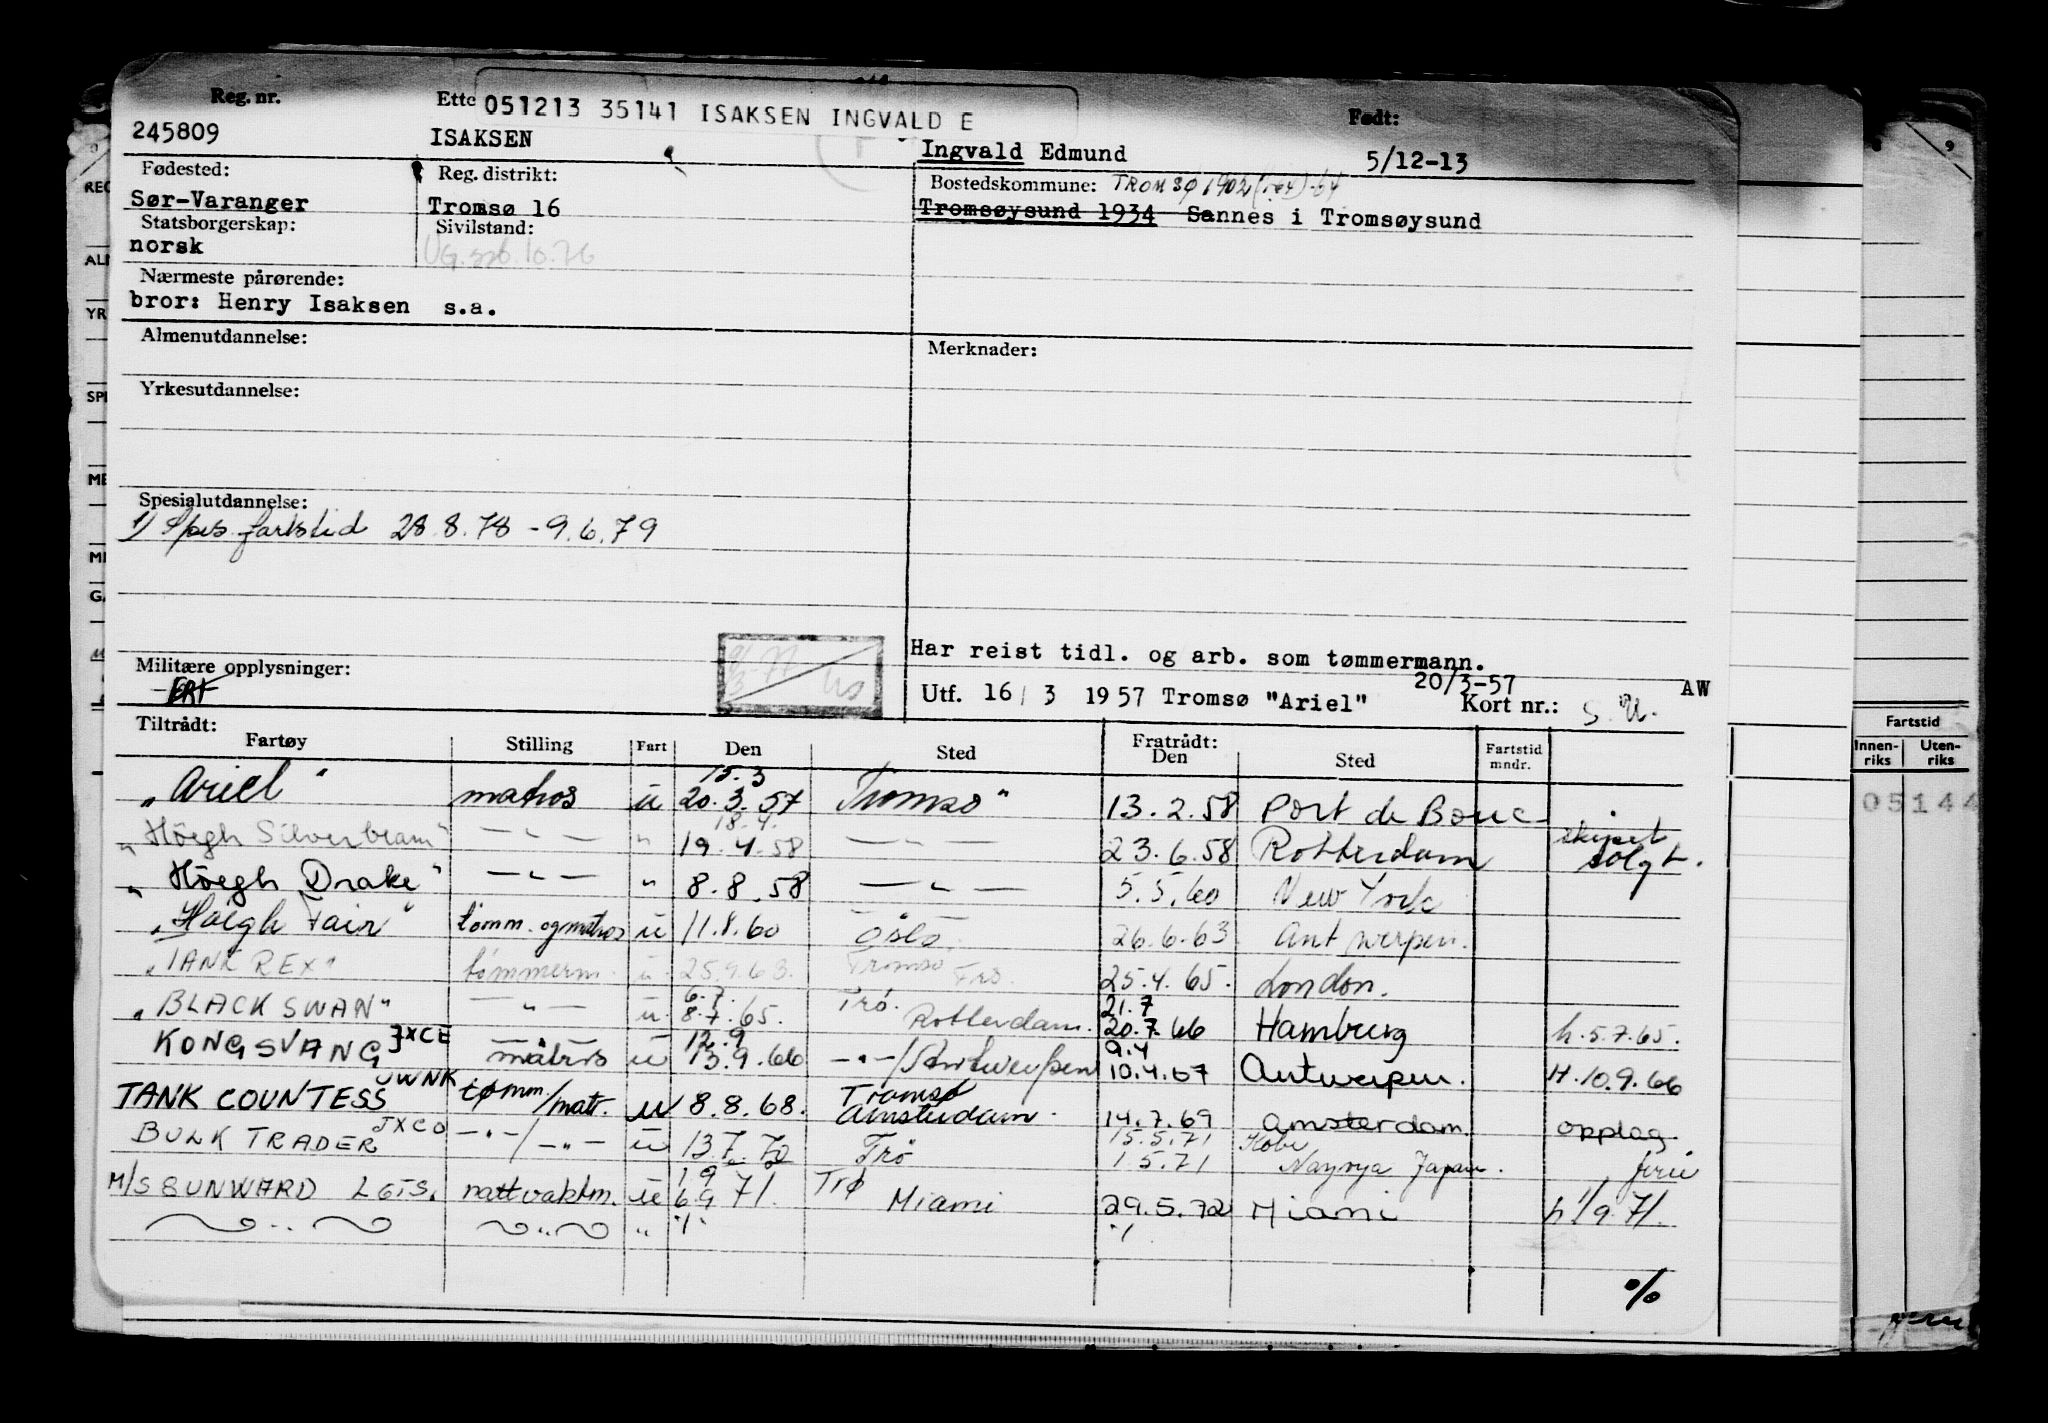 Reg. nr. Ette 051213 35141 ISAKSEN INGVALD E Født:
245809 ISAKSEN Ingvald Edmund 5/12-13
Fødested: Reg. distrikt: Bostedskommune: TROMSØ 1902
Sør-Varanger Tromsø 16 Tromsøysund 1934 Sannes i Tromsøysund
Statsborgerskap: Sivilstand:
norsk UG. 10.76
Nærmeste pårørende:
bror: Henry Isaksen s.a.
Almenutdannelse: Merknader:
Yrkesutdannelse:
Spesialutdannelse:
1) Spes fartstid 28.8.78 - 9.6.79
Har reist tidl. og arb. som tømmermann.
Militære opplysninger: 20/3-57 AW
Utf. 16/3 1957 Tromsø "Ariel" Kort nr.:
Tiltrådt: Fratrådt:
Fartøy Stilling Fart Den Sted Den Sted Fartstid mndr.
15.3
"Ariel" matros u 20.3.57 Tromsø 13.2.58 Port de Bouc
18.4.
"Höegh Silverbeam" — " — " 19.4.58 — " — 23.6.58 Rotterdam skipet solgt.
"Höegh Drake" — " — " 8.8.58 — " — 5.5.60 New York
"Høegh Fair" tømm. og matros u 11.8.60 Oslo 26.6.63 Antwerpen.
"TANK REX" tømmerm. u 25.9.63. Tromsø Trø. 25.4.65. London.
6.7. 21.7
"BLACK SWAN" — " — u. 8.7.65. Trø. Rotterdam. 20.7.66 Hamburg h. 5.7.65.
12.9 9.4
KONGSVANG JXCE matros u 13.9.66 — " — / Antwerpen 10.4.67 Antwerpen. H. 10.9.66
TANK COUNTESS JWNK tømm./matr. u 8.8.68. Tromsø Amsterdam. 14.7.69 Amsterdam. opplag.
15.5.71 Kobe
BULK TRADER JXCO — " — / — " — u 13.7.70 Trø 1.5.71 Nagoya Japan. ferie
1.9
M/S SUNWARD LGTS. nattvaktm. u 6.9 71. Trø Miami 29.5.72 Miami h 1/9.71.
" " " ./. ./.
%
REG
ALM
YR
SPE
ME
MI
Fartstid
Innen-riks Uten-riks
05144
9